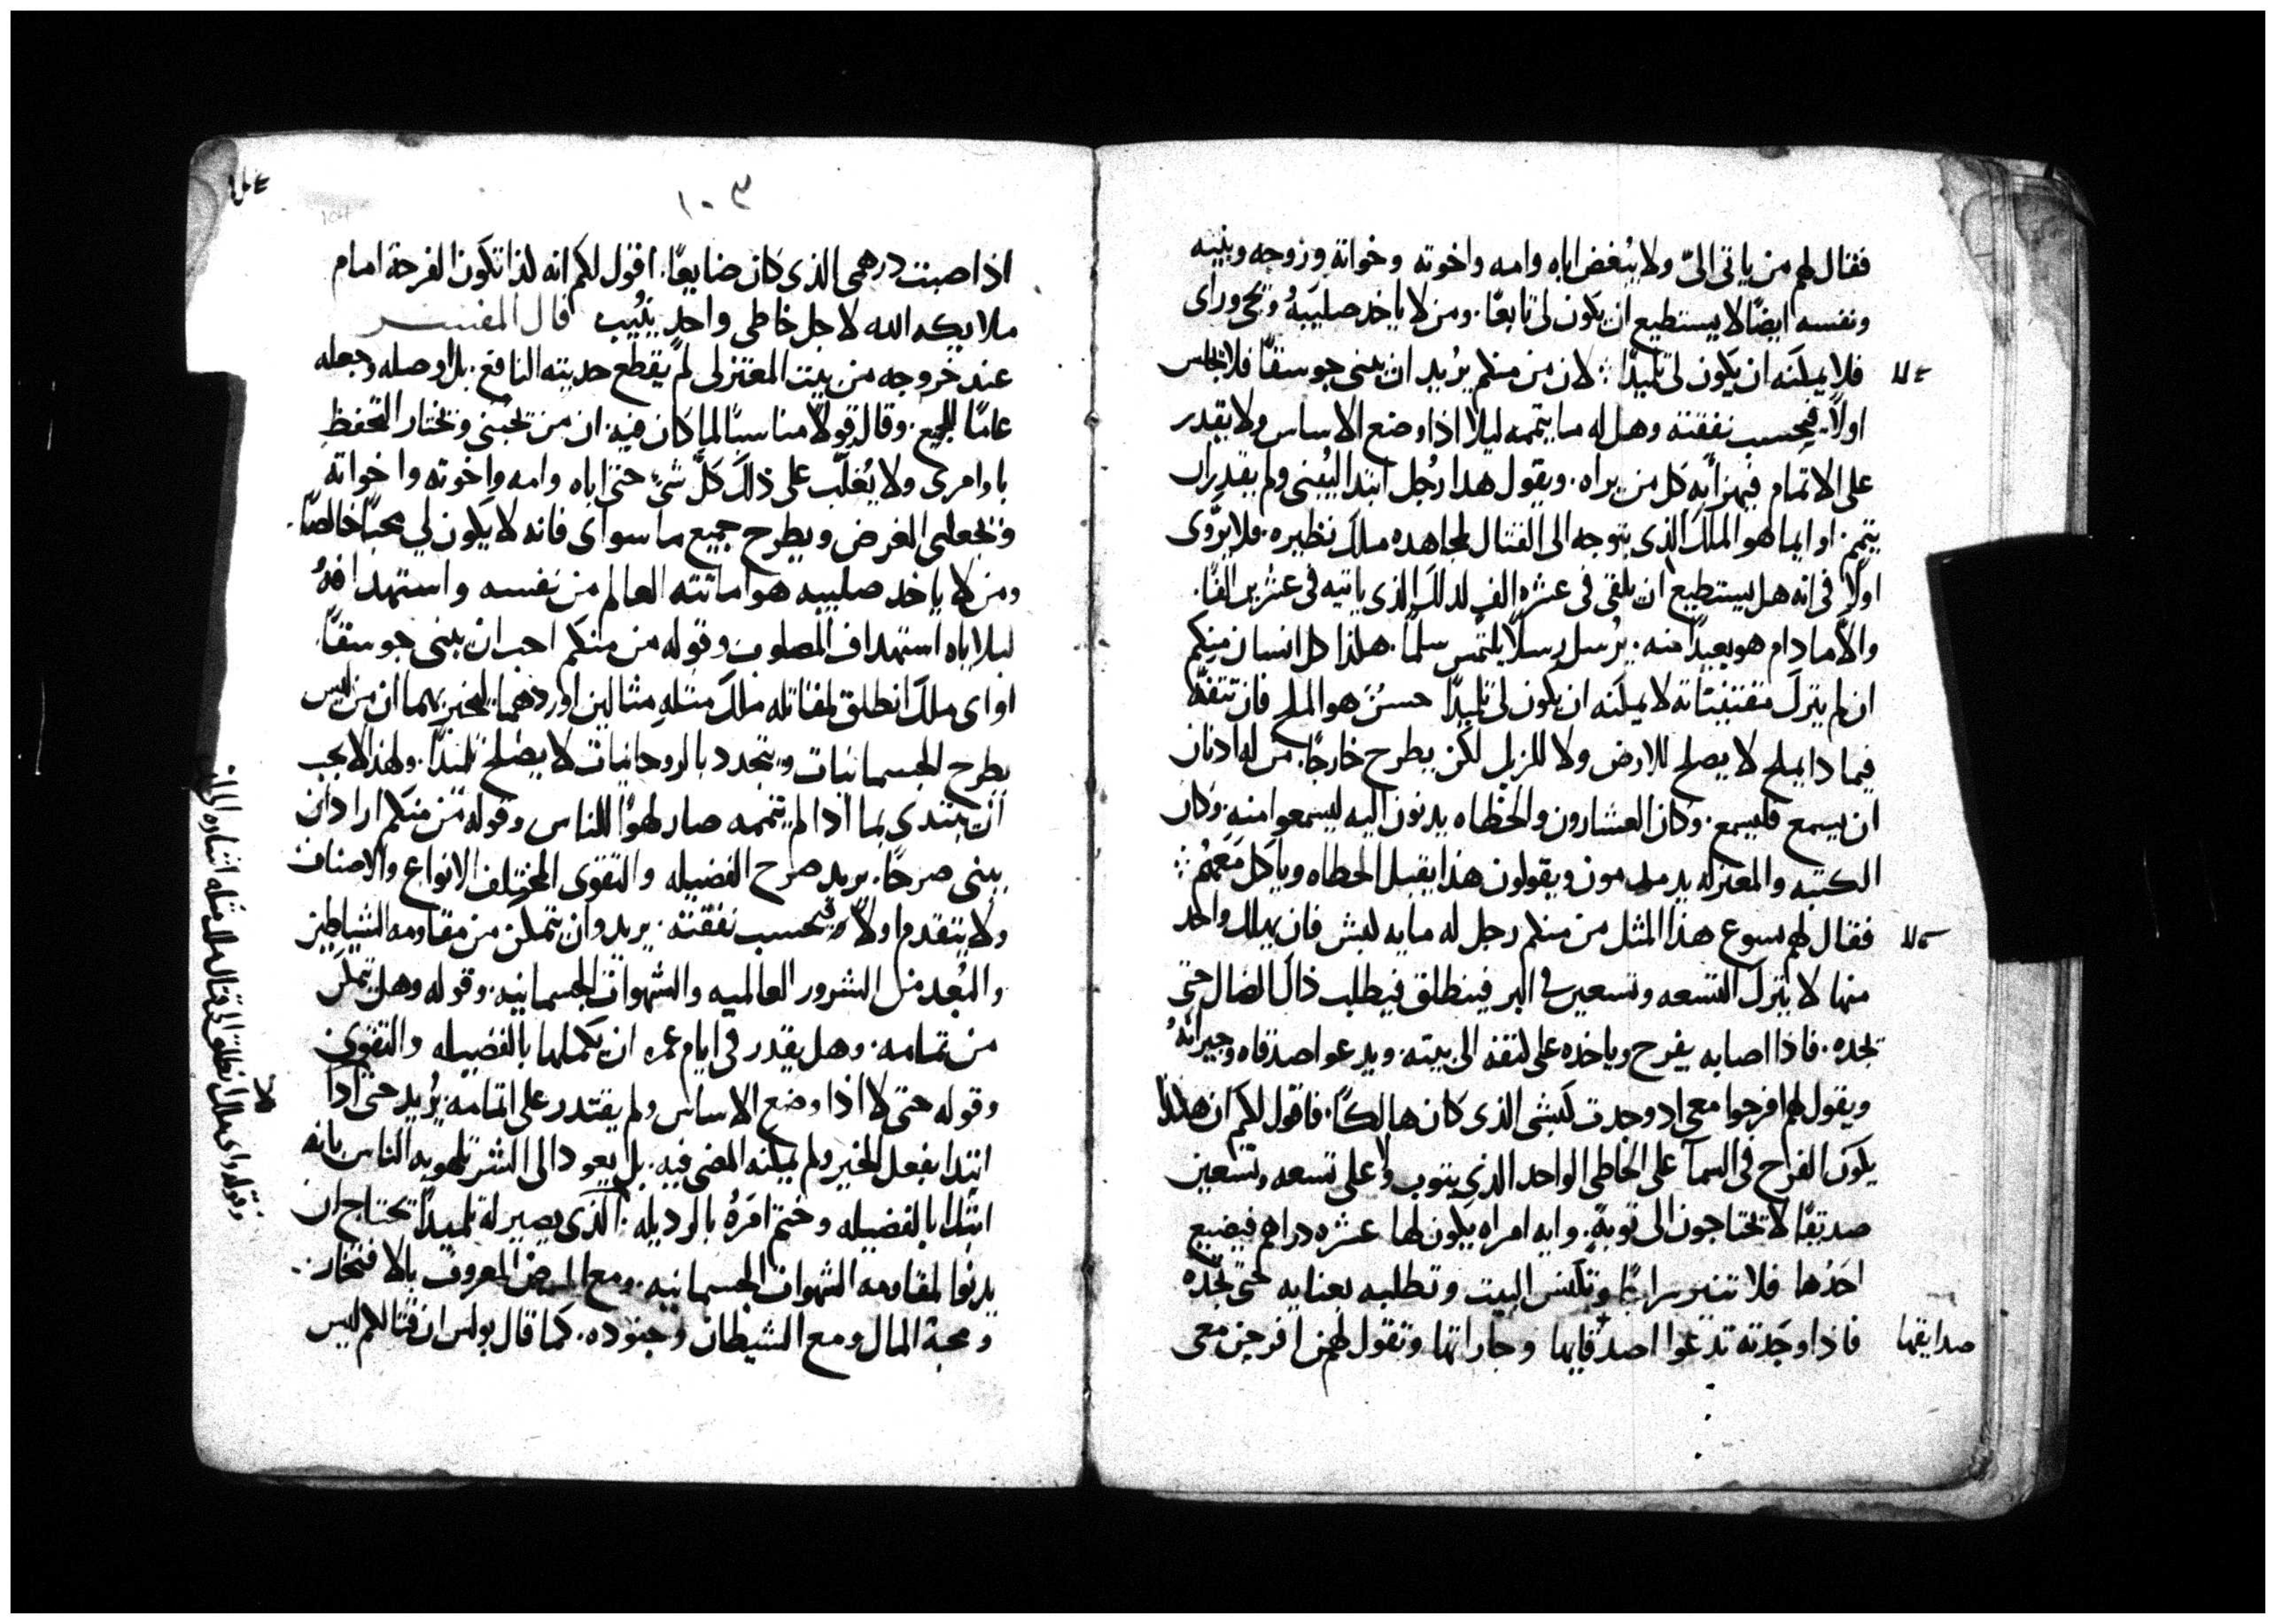 فقال لهم من ياتى الىّ ولا يُبغض اباه وامه واخوته وخواته وزوجه وبنيه
ونفسه ايضًا لا يستطيع ان يكون لى تابعًا. ومن لا ياخد صليبهُ ويجى وراى
فلا يمكنه ان يكون لى تلميدًا لان من منكم يُريد ان يبنى جوسقًا فلا يجلس
اولاً فيحسب نفقته وهل له ما يتممه ليلا اذا وضع الاساس ولا يقدر
على الاتمام فيهزا به كل من يراه. ويقول هدا رُجل ابتدا ليُبنى ولم يقدر ان
يتمم. او ايما هو الملك الذى يتوجه الى القتال لمجاهده ملك نظيره. فلا يروّى
اولاً فى انه هل يستطيع ان يلقى فى عشره الف لدلك الذى ياتيه فى عشرين الفًا.
والاّ ما دام هو بعيدًا منه. يُرسل رسلاً يلتمس سلمًا. هكذا كل انسان منكم
ان لم يترك مقتنيتاته لا يمكنه ان يكون لى تلميدًا حسنٌ هو الملح فان تتفّه
فيما دا يملح لا يصلح للارض ولا للزبل لكن يطرح خارجًا. من له ادنان
ان يسمع فليسمع. وكان العشارون والخطاه يدنون اليه ليسمعوا منه. وكان
الكتبه والمعتزله يدمدمون ويقولون هذا يقبل الخطاه وياكل معهُم
فقال لهم يسوع هذا المثل من منكم رجل له مايه كبش فان يهلك واحد
منها لا يترك التسعه وتسعين فى البر فينطلق فيطلب ذاك الضال حتى
يجده. فاذا اصابه يفرح وياخده على كتفه الى بيته. ويدعوا اصدقاه وجيرانهُ
ويقول لهم افرحوا معى اد وجدت كبشى الذى كان هالكًا. فاقول لكم ان هكذا
يكون الفراح فى السما على الخاطى الواحد الذى يتوب ولا على تسعه وتسعين
صديقًا لا يحتاجون الى توبةٍ. وايه امراه يكون لها عشره دراهم فيضيع
احدُها فلا تنير سراجًا وتكنس البيت وتطلبه بعنايه حتى تجده
فاذا وجدته تدعوا اصدقايها وجاراتها وتقول لهن افرحن معى
صدايقها
١٠٣
اذ اصبت درهمى الذى كان ضايعًا. اقول لكم انه كذا تكون الفرحة امام
ملايكه الله لاجل خاطى واحدٍ يتُيب قال المفسر
عند خروجه من بيت المعتزلى لم يقطع حديته النافع. بل اوصله وجعله
عامًا للجميع. وقال قولاً مناسبًا لما كان فيه. ان من يحبنى ويختار التحفظ
باوامرى ولا يُغلّب على ذلك كلّ شى حتى اباه وامه واخوته واخواته
ويجعلنى الغرض ويطرح جميع ما سواى فانه لا يكون لي محبًا خالصًا.
ومن لا ياخد صليبه هو اماتته العالم من نفسه واستهدافهُ
لبلاياه استهداف المصلوب وقوله من منكم احب ان يبنى جوسقًا
او اى ملك انطلق لمقاتله ملك متله مثالين اوردهما ليخبر بهما ان من ليس
يطرح الجسمانيات ويتجدد بالروحانيات لا يصلح تلميدًا. ولهذا لا يجب
ان يبتدى بما ادا لم يتممه صار لهوًا للناس وقوله من منكم اراد ان
يبنى صرحًا. يريد صرح الفضيله والتقوى المختلف الانواع والاصناف
ولا يتقدم اولاً فيحسب نفقته. يريد وان يتمكن من مقاومه الشياطين
والبُعد من الشرور العالميه والشهوات الجسمانيه. وقوله وهل يتمكن
من تمامه. وهل يقدر فى ايام عمره ان يكملها بالفضيله والتقوى
وقوله حتى لا اذا وضع الاساس ولم يقتدر على اتمامه. يُريد حتى ادا
ابتدا بفعل الخير ولم يمكنه المضى فيه. بل يعود الى الشر يلهو به الناس بانه
ابتدا بالفضيله وختم امَرهُ بالرديله. الذى يصير له تلميدًا يحتاج ان
يدنوا لمقاومه الشهوات الجسمانيه. ومع المرض المعروف بالافتخار.
ومحبة المال ومع الشيطان وجنوده. كما قال بولس ان قتالكم ليس
وقوله واى ملك انطلق الى قتال ملك متله اشاره